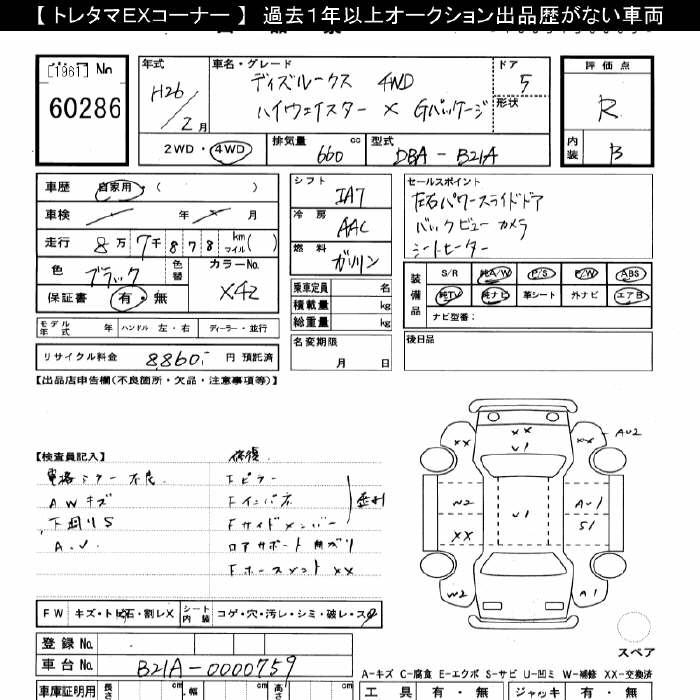 【 トレタマEXコーナー 】 過去1年以上オークション出品歴がない車両
[1961] No
60286
年式
H26/2月
車名・グレード
ディズルークス 4WD
ハイウェイスター X Gパッケージ
ドア
5
形状
評価点
R
内装
B
2WD・4WD
排気量 660 cc
型式 DBA-B21A
車歴 自家用・( )
車検 年 月
走行 8万7千878 km マイル( )
色 ブラック
色替
カラーNo. X42
保証書 有・無
モデル年式 年 ハンドル 左・右 ディーラー・並行
リサイクル料金 8860- 円 預託済
シフト IA7
冷房 AAC
燃料 ガソリン
乗車定員 名
積載量 kg
総重量 kg
名変期限
月 日
セールスポイント
左右パワースライドドア
バックビューカメラ
シートヒーター
装備品
S/R 純A/W P/S P/W ABS
純TV 純ナビ 革シート 外ナビ エアB
ナビ型番：
後日品
【出品店申告欄(不良箇所・欠品・注意事項等)】
【検査員記入】
電格ミラー不良
AWキズ
下廻りS
修復
Fピラー
Fインパネ
Fサイドメンバー
ロアサポート曲がり
XX XX A U2
U1
W2 U1 A U1
XX S1
W2 A1
スペア
FW キズ・ト飛石・割レX
シート内装 コゲ・穴・汚レ・シミ・破レ・スレ
登録No.
車台No. B21A-0000759
A-キズ C-腐食 E-エクボ S-サビ U-凹ミ W-補修 XX-交換済
車庫証明用 長さ cm 幅 cm 高さ cm
工具 有・無 ジャッキ 有・無